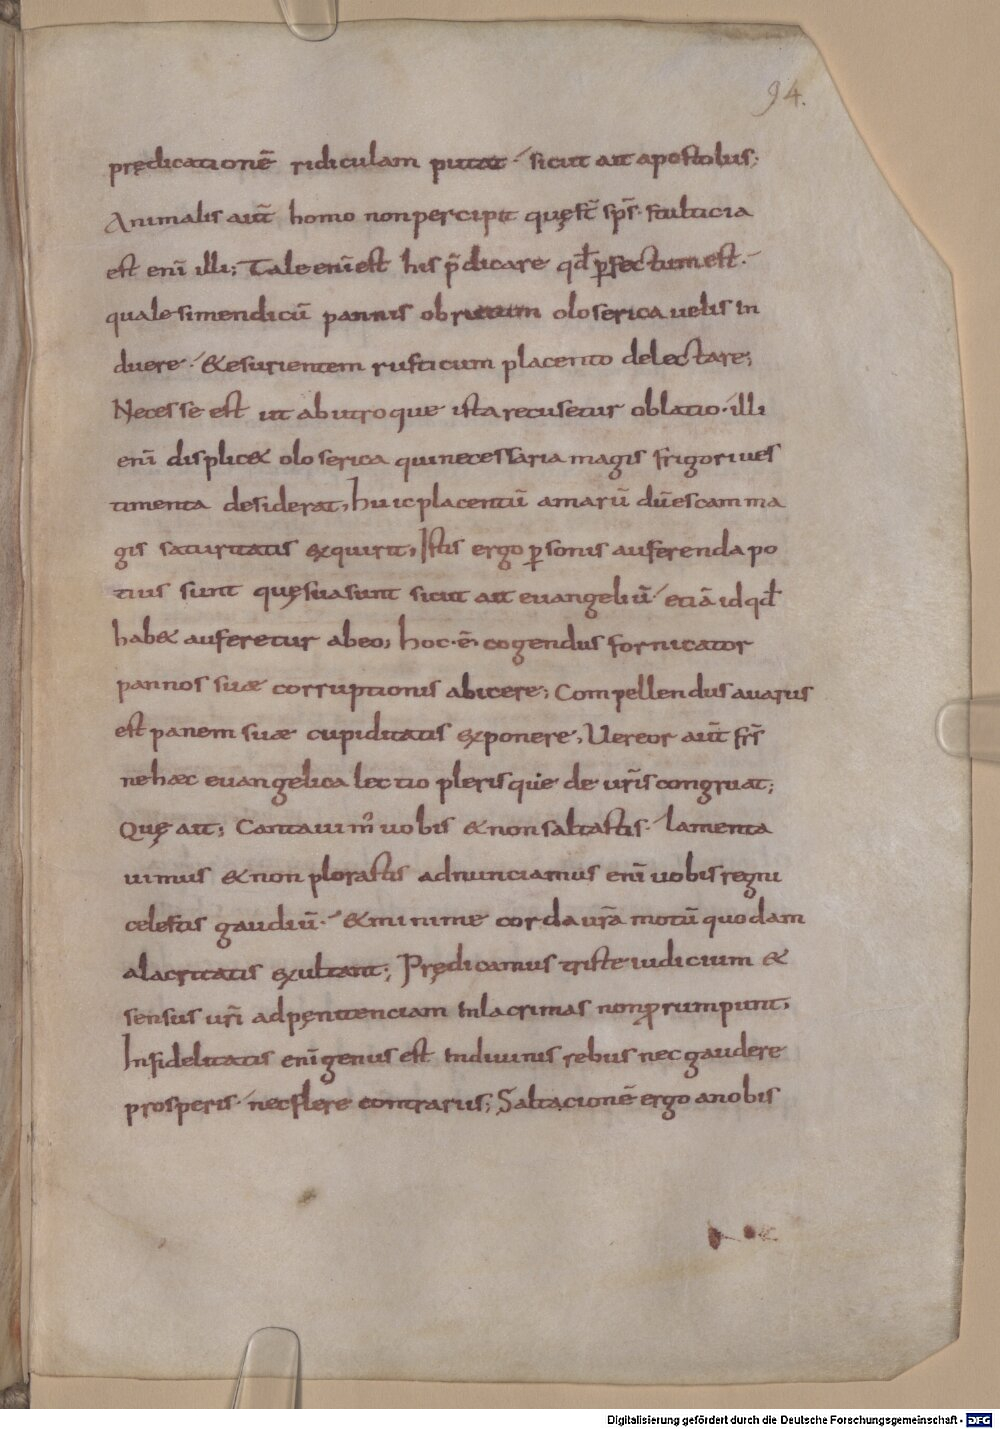 94.
prędicationē ridiculam putat· sicut ait apostolus;
Animalis aut̄ homo non percipit quę st̄ sp̄s· stulticia
est eni̅ illi; Tale eni̅ est his p̄dicare qd̄ ꝑfectum est·
quale si mendicū pannis obrutum olosericauelis in
duere· & esurientem rusticum placento delectare;
Necesse est ut ab utroque ista recusetur oblatio· illi
eni̅ displic& oloserica qui necessaria magis frigori ues
timenta desiderat, huic placentū amarū dū escam ma
gis saturitatis exquirit, Istis ergo ꝑsonis auferenda po
tius sunt quę sua sunt sicut ait euangeliū· etiā id qd̄
hab& auferetur ab eo, hoc·ē· cogendus fornicator
pannos suæ corruptionis abicere; Compellendus auarus
est panem suæ cupiditatis exponere, Uereor aut̄ fr̄s
ne hæc euangelica lectio plerisque de ur̄is congruat;
Quę ait; Cantauim᷒ uobis & non saltastis· lamenta
uimus & non plorastis adnunciamus eni̅ uobis regni
celestis gaudiū· & minime corda ur̄a motū quodam
alacritatis exultant; Prędicamus triste iudicium &
sensus ur̄i ad pęnitenciam in lacrimas non ꝓrumpunt,
Infidelitatis eni̅ genus est in diuinis rebus nec gaudere
prosperis· nec flere contrariis; Saltacionē ergo a nobis
Digitalisierung gefördert durch die Deutsche Forschungsgemeinschaft - DFG